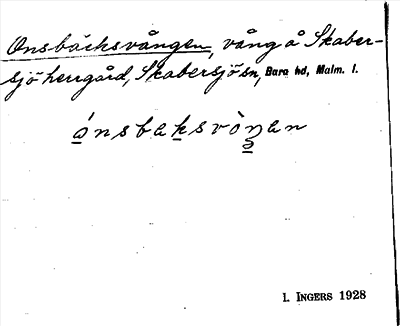 Onsbäcksvången, vång å Skaber-
sjö herrgård, Skabersjö sn, Bara hd, Malm. l.
ónsbaksvòŋan
I. INGERS 1928